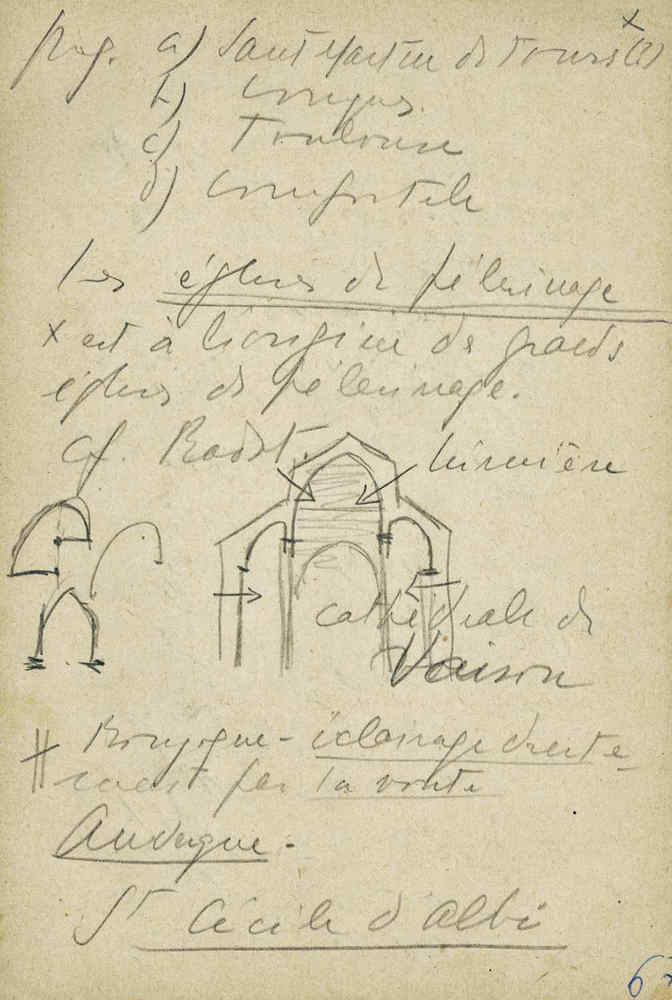 x
prog. a) Saint Martin de Tours (?)
b) Conques.
c) Toulouse
d) Compostele
Les églises de pélerinage
x est à l'origine des grands
églises de pélerinage.
cf.
lumière
cathédrale de
Vaison
Bourgogne - éclairage directe
par la voute
Auvergne.
St Cécile d'Albi